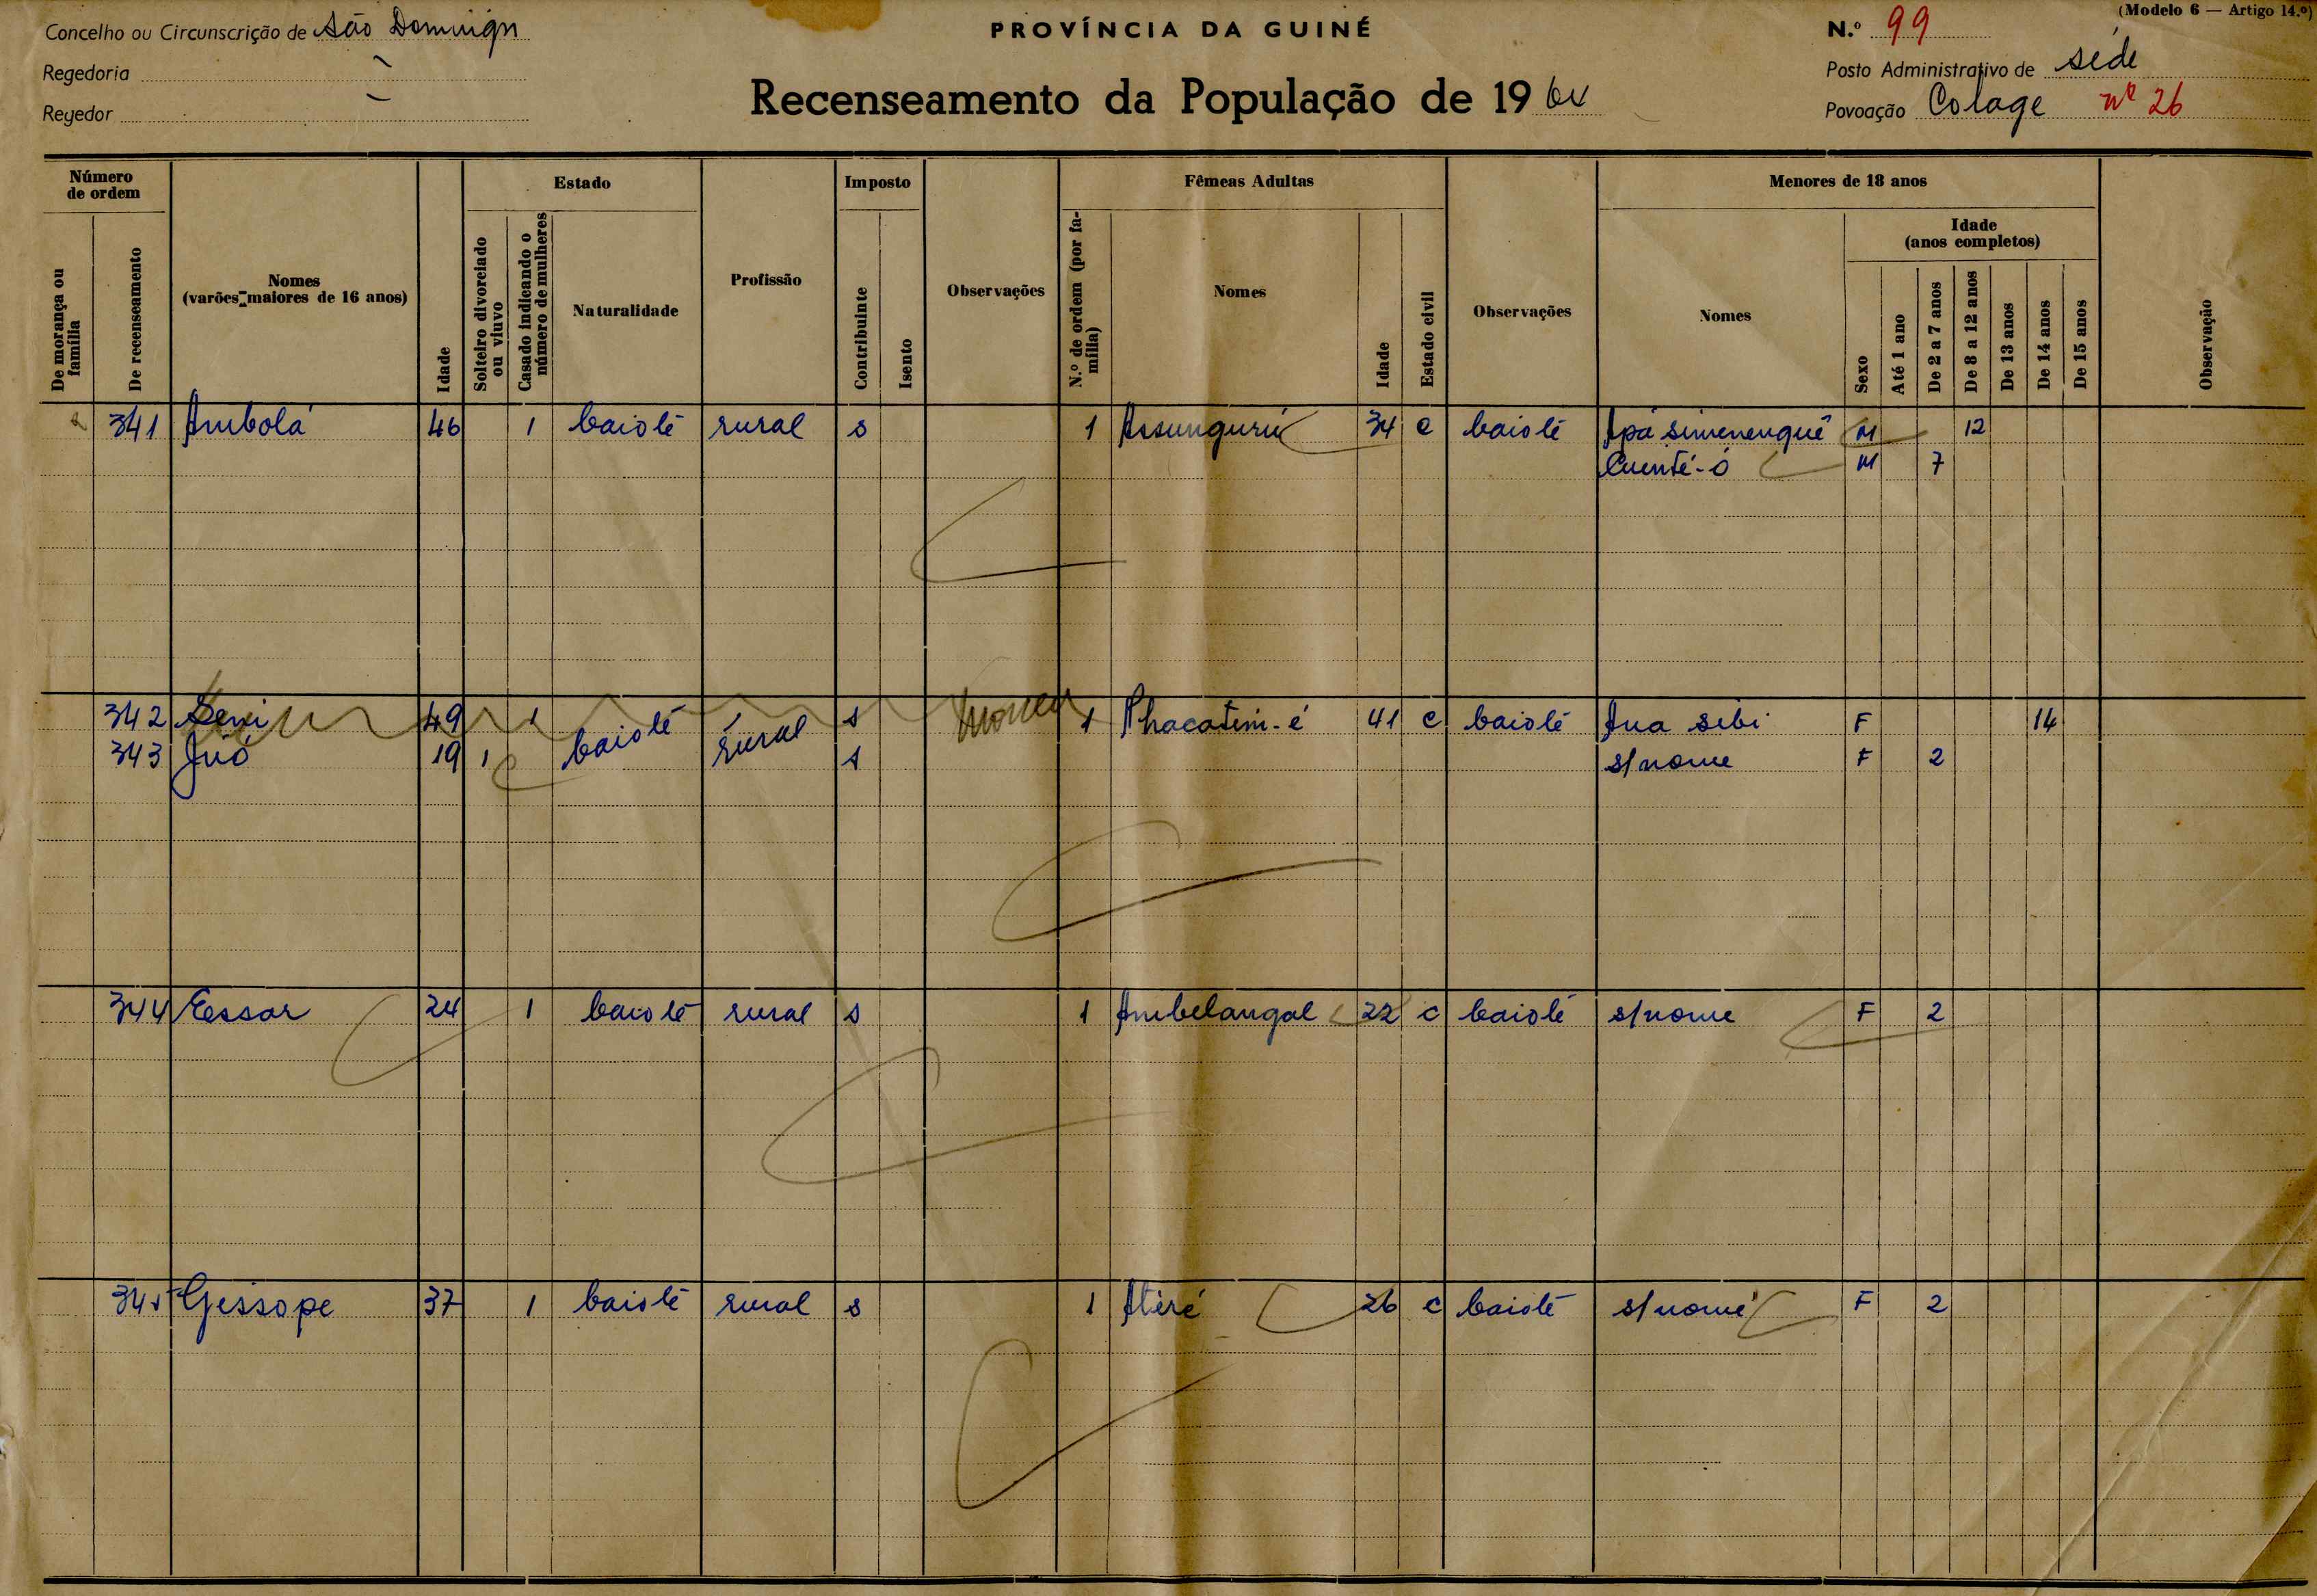 (Modelo 6 — Artigo 14.º)
Concelho ou Circunscrição de São Domingos
PROVÍNCIA DA GUINÉ
N.º 99
Regedoria
Posto Administrativo de séde
Regedor
Recenseamento da População de 19
Povoação Colage nº 26
Número de ordem
De morança ou família
De recenseamento
Nomes
(varões maiores de 16 anos)
Idade
Estado
Solteiro divorciado ou viuvo
Casado indicando o número de mulheres
Naturalidade
Profissão
Imposto
Contribuinte
Isento
Observações
Fêmeas Adultas
N.º de ordem (por família)
Nomes
Idade
Estado civil
Observações
Menores de 18 anos
Nomes
Sexo
Idade
(anos completos)
Até 1 ano
De 2 a 7 anos
De 8 a 12 anos
De 13 anos
De 14 anos
De 15 anos
Observação
341 Ambolá 46 1 baiotê rural s 1 Assungurú 34 c baiotê Apá simenenquê M 12
Cuenté-ó M 7
342 Seni 49 1 baiotê rural s morreu 1 41 c baiotê Ana sibi F 14
343 Juó 19 1 s s/nome F 2
344 Eessor 24 1 baiotê rural s 1 Ambelangal 22 c baiotê s/nome F 2
345 Gessope 37 1 baiotê rural s 1 Atéré 26 c baiotê s/nome F 2